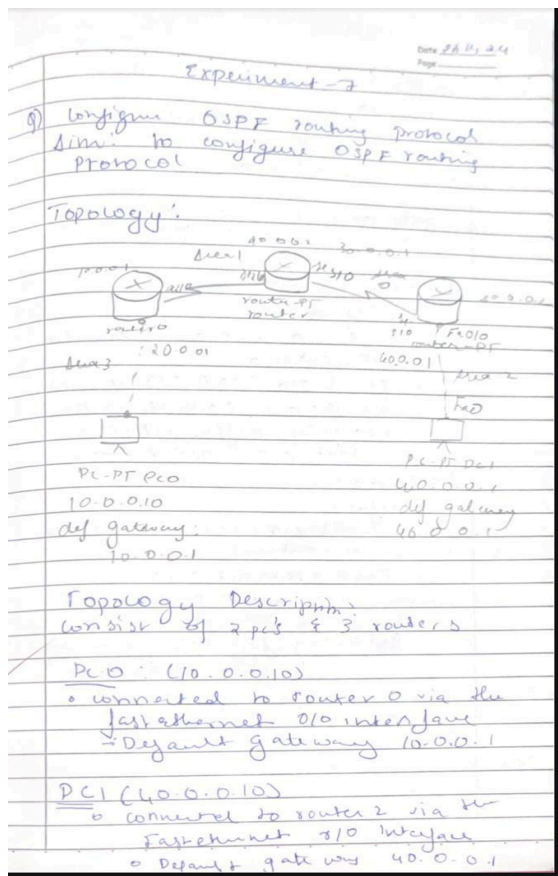 Date 26/11/24
Page
Experiment-7
Q) Configure OSPF routing protocol
Aim: to configure OSPF routing
protocol
Topology:
40.0.0.1 30.0.0.1
Area 1
10.0.0.1
router-PT
router
router0
Fa0/0
router-PT
20.0.01
40.0.01
Area 3
Area 2
Fa0
PC-PT PC0
PC-PT PC1
10.0.0.10
40.0.0.1
def gateway:
def gateway
10.0.0.1
40.0.0.1
Topology Description:
consist of 2 pc's & 3 routers
PC0 : (10.0.0.10)
• connected to router 0 via the
fastethernet 0/0 interface
- Default gateway 10.0.0.1
PC1 (40.0.0.10)
• connected to router 2 via the
Fastethernet 0/0 interface
• Default gate way 40.0.0.1